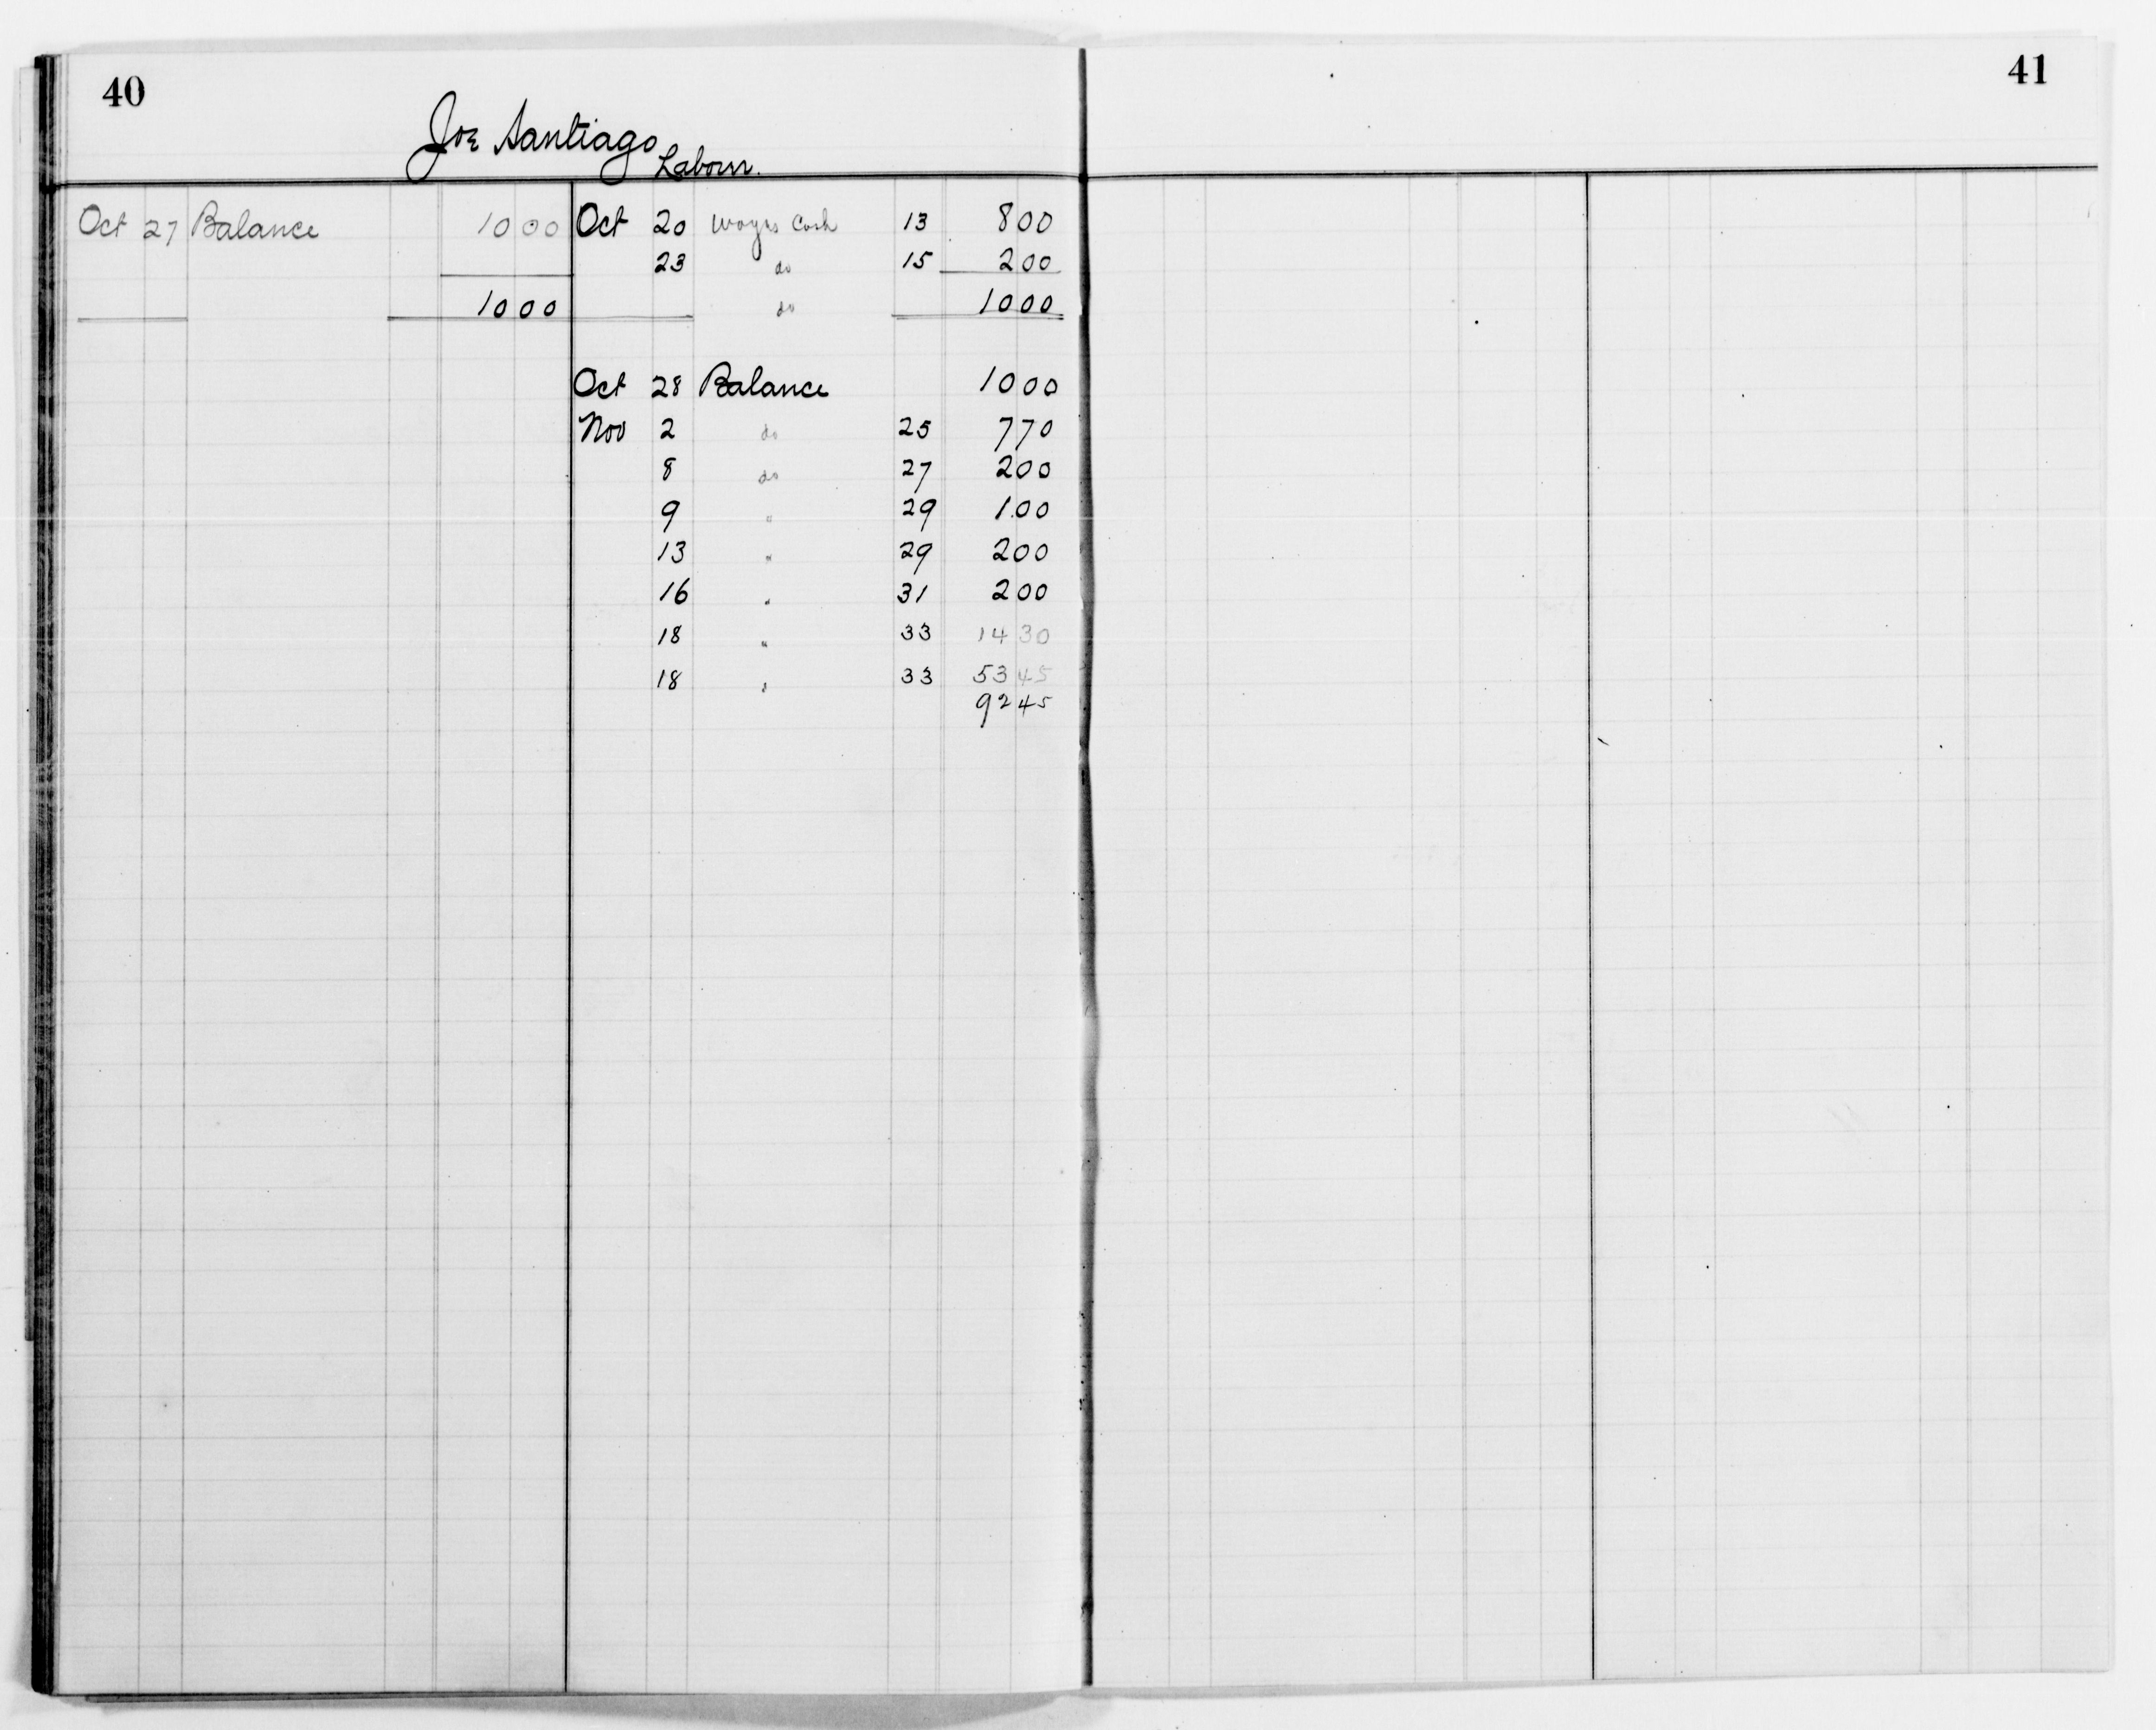 40
41
Joe Santiago
Labour.
Oct 27 Balance 1000 Oct 20 Wages Cash 13 800
23 do 15 200
1000 do 1000
Oct 28 Balance 1000
Nov 2 do 25 770
8 do 27 200
9 " 29 1.00
13 " 29 200
16 " 31 200
18 " 33 1430
18 " 33 5345
9245